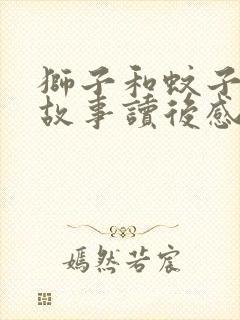 獅子和蚊子
故事讀後感
嫣然若宸